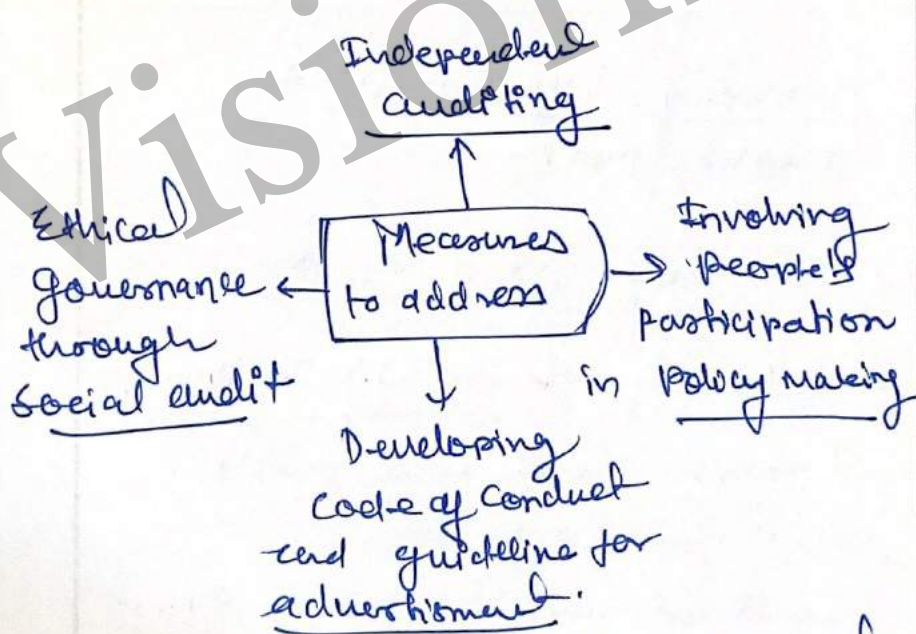 Vision
Independent
auditing
Ethical
governance
through
social audit
Measures
to address
Involving
people's
participation
in policy making
Developing
code of conduct
and guideline for
advertisment.